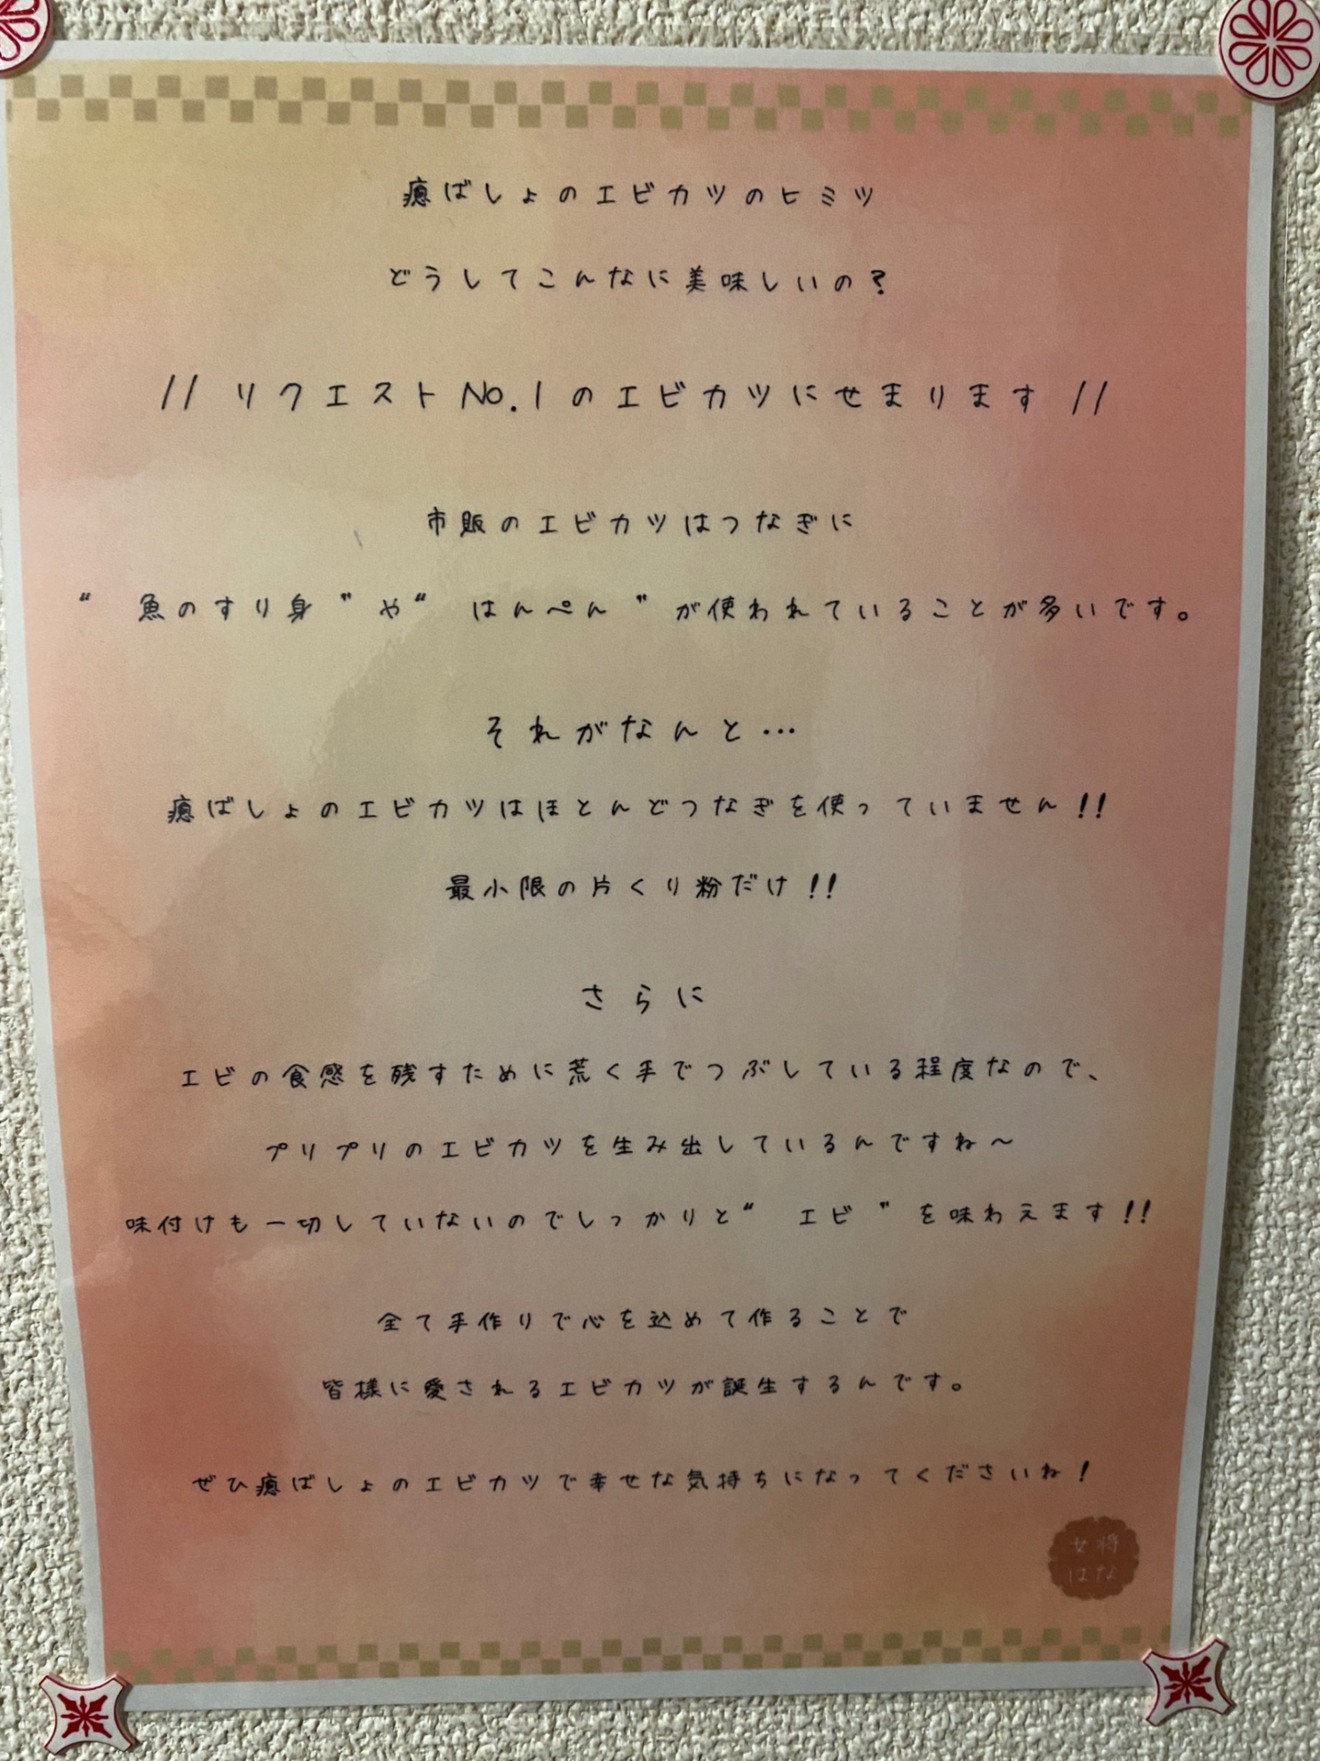 癒ばしょのエビカツのヒミツ
どうしてこんなに美味しいの?
// リクエストNo.1のエビカツにせまります //
市販のエビカツはつなぎに
“ 魚のすり身 ”や“ はんぺん ”が使われていることが多いです。
それがなんと…
癒ばしょのエビカツはほとんどつなぎを使っていません!!
最小限の片くり粉だけ!!
さらに
エビの食感を残すために荒く手でつぶしている程度なので、
プリプリのエビカツを生み出しているんですね〜
味付けも一切していないのでしっかりと“ エビ ”を味わえます!!
全て手作りで心を込めて作ることで
皆様に愛されるエビカツが誕生するんです。
ぜひ癒ばしょのエビカツで幸せな気持ちになってくださいね!
女将
はな